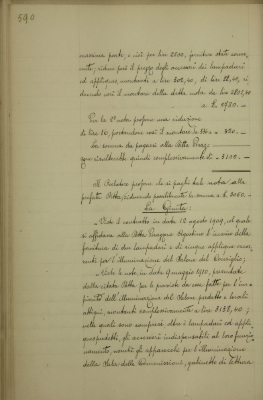 590
massima parte, e cioè per lire 2500, fornitura stata conve-
nuta, riduce però il prezzo degli accessori dei lampadari
ed appliques, montanti a lire 302,40, di lire 22,40, ri-
ducendo così il montare della detta nota da lire 2802,40
a L. 2780. -
Per la 2ª nota propone una riduzione
di lire 10, portandone così il montare da 330 a " 320. -
La somma da pagarsi alla Ditta
risulterebbe quindi complessivamente di " 3100. -
Il Relatore propone che si paghi tale nota alla
prefata Ditta, riducendo possibilmente la somma a L. 3050. -
La Giunta:
- Visto il contratto in data 12 agosto 1909, col quale
si affidava alla Ditta l'incarico della
fornitura di due lampadari e di cinque appliques occor-
renti per l'illuminazione del Salone del Consiglio;
- Viste le note, in data 9 maggio 1910, presentate
dalla citata Ditta per le provviste da essa fatte per l'im-
pianto dell'illuminazione del Salone predetto e locali
attigui, montanti complessivamente a lire 3132,40;
nelle quali sono compresi, oltre i lampadari ed appli-
ques predetti, gli accessori indispensabili al loro funzio-
namento, nonchè gli apparecchi per l'illuminazione
della Sala delle Commissioni, gabinetto di lettura